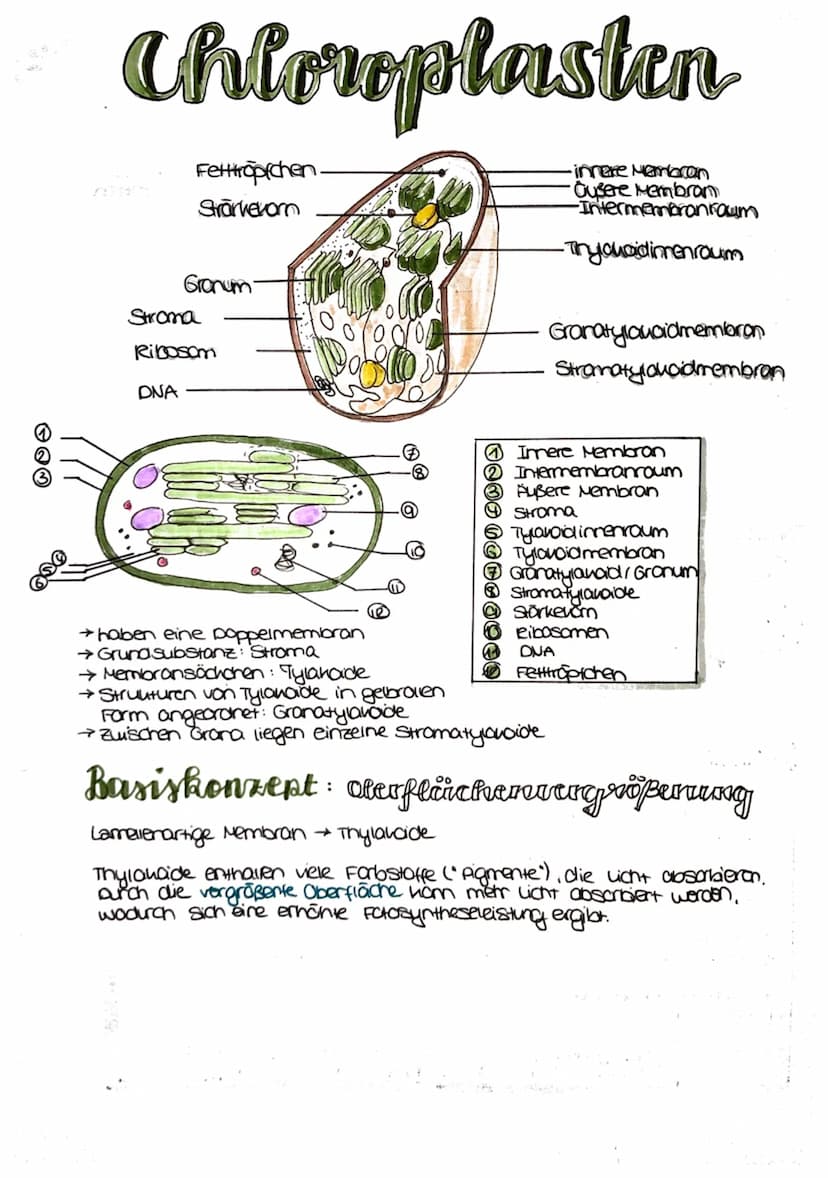 Chloroplasten
Fetttröpfchen
Stärkekorn
Granum
Stroma
Ribosom
DNA
innere Membran
Äußere Membran
Intermembranraum
Thylakoidinnenraum
Granatylakoidmembran
Stromatylakoidmembran
1
2
3
4
5
6
7
8
9
10
11
12
1 Innere Membran
2 Intermembranraum
3 Äußere Membran
4 Stroma
5 Tylakoidinnenraum
6 Tylakoidmembran
7 Granatylakoid / Granum
8 Stromatylakoide
9 Stärkekorn
10 Ribosomen
11 DNA
12 Fetttröpfchen
→ haben eine Doppelmembran
→ Grundsubstanz: Stroma
→ Membransäckchen: Tylakoide
→ Strukturen von Tylakoide in gestapelter
Form angeordnet: Granatylakoide
→ Zwischen Grana liegen einzelne Stromatylakoide
Basiskonzept: Oberflächenvergrößerung
Lamellenartige Membran → Thylakoide
Thylakoide enthalten viele Farbstoffe ("Pigmente"), die Licht absorbieren.
Durch die vergrößerte Oberfläche kann mehr Licht absorbiert werden,
wodurch sich eine erhöhte Fotosyntheseleistung ergibt.